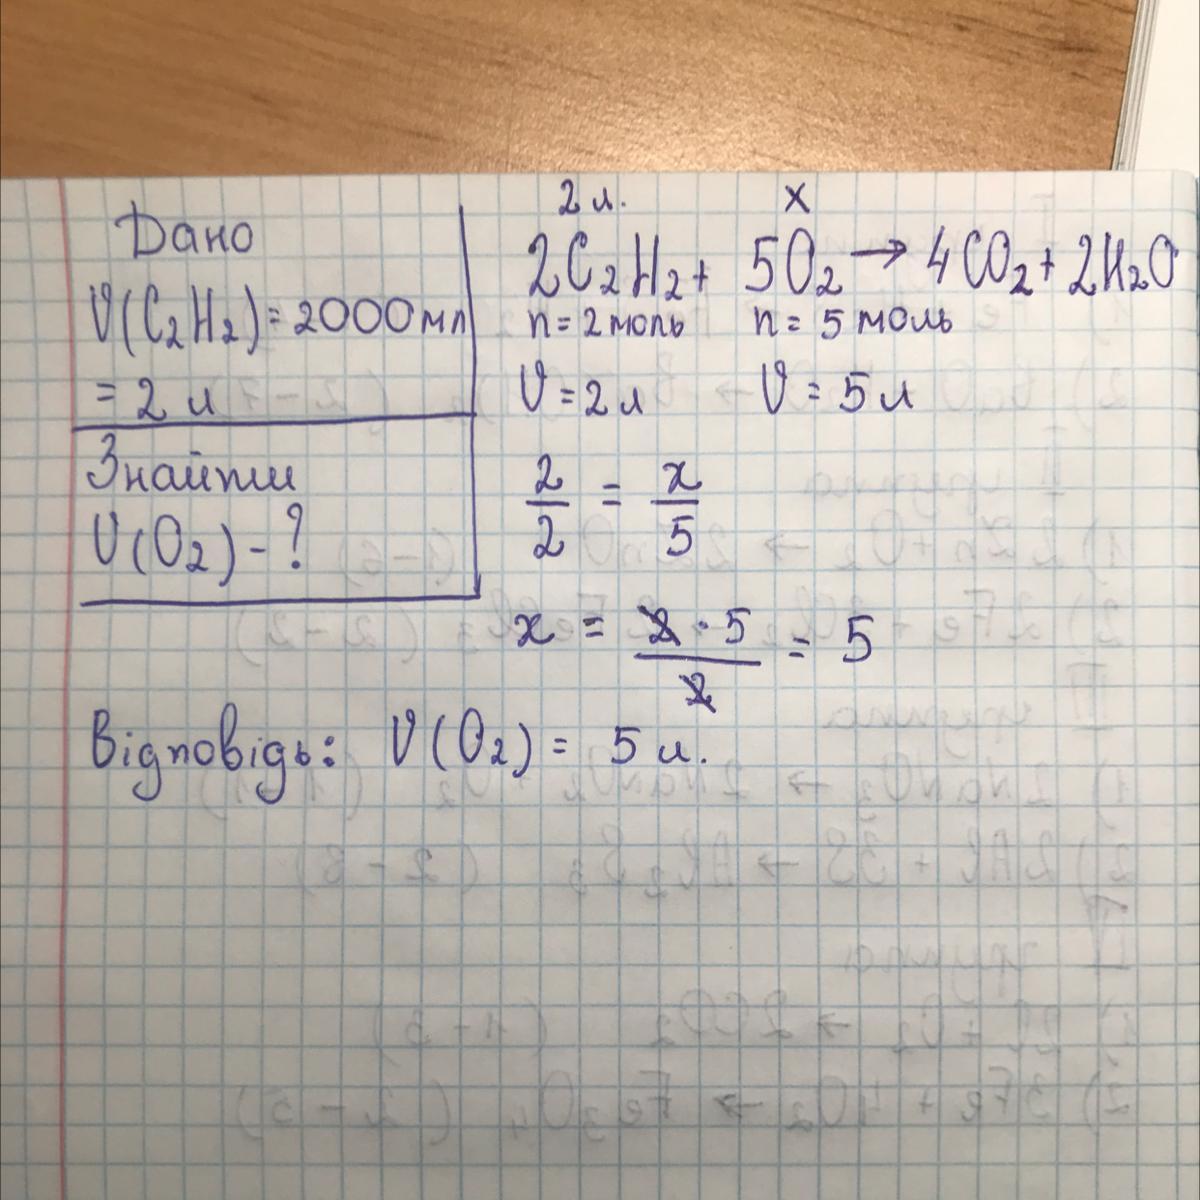 Дано
V(C₂H₂) = 2000 мл
= 2 л
Знайти
V(O₂) - ?
2 л. x
2C₂H₂ + 5O₂ → 4CO₂ + 2H₂O
n = 2 моль n = 5 моль
V = 2 л V = 5 л
2/2 = x/5
x = 2 · 5 / 2 = 5
Відповідь: V(O₂) = 5 л.